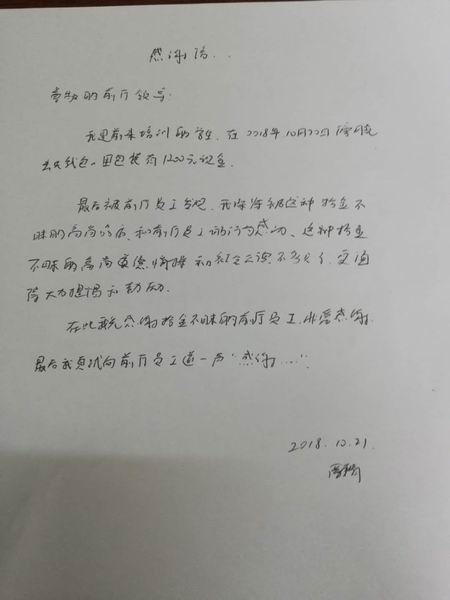 感谢信
尊敬的前厅领导:
我是前来培训的学生,在2018年10月20日傍晚
丢失钱包,里包装有1200元现金。
最后被前厅员工发现,我深深被这种拾金不
昧的高尚品质和前厅员工的行为感动、这种拾金
不昧的高尚 情操和 不多见了,更值
得大力提倡和鼓励。
在此我感谢拾金不昧的前厅员工,非常感谢,
最后我真诚向前厅员工道一声"感谢……".
2018.10.21